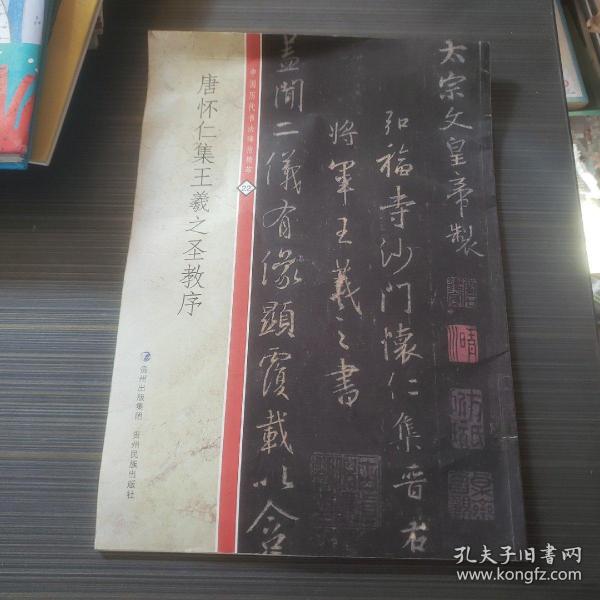 唐怀仁集王羲之圣教序
中国历代书法碑帖精萃
22
贵州出版集团 贵州民族出版社
太宗文皇帝製
弘福寺沙门懷仁集晋右
将軍王羲之書
盖聞二儀有像顯覆載以含
孔夫子旧书网
www.kongfz.com